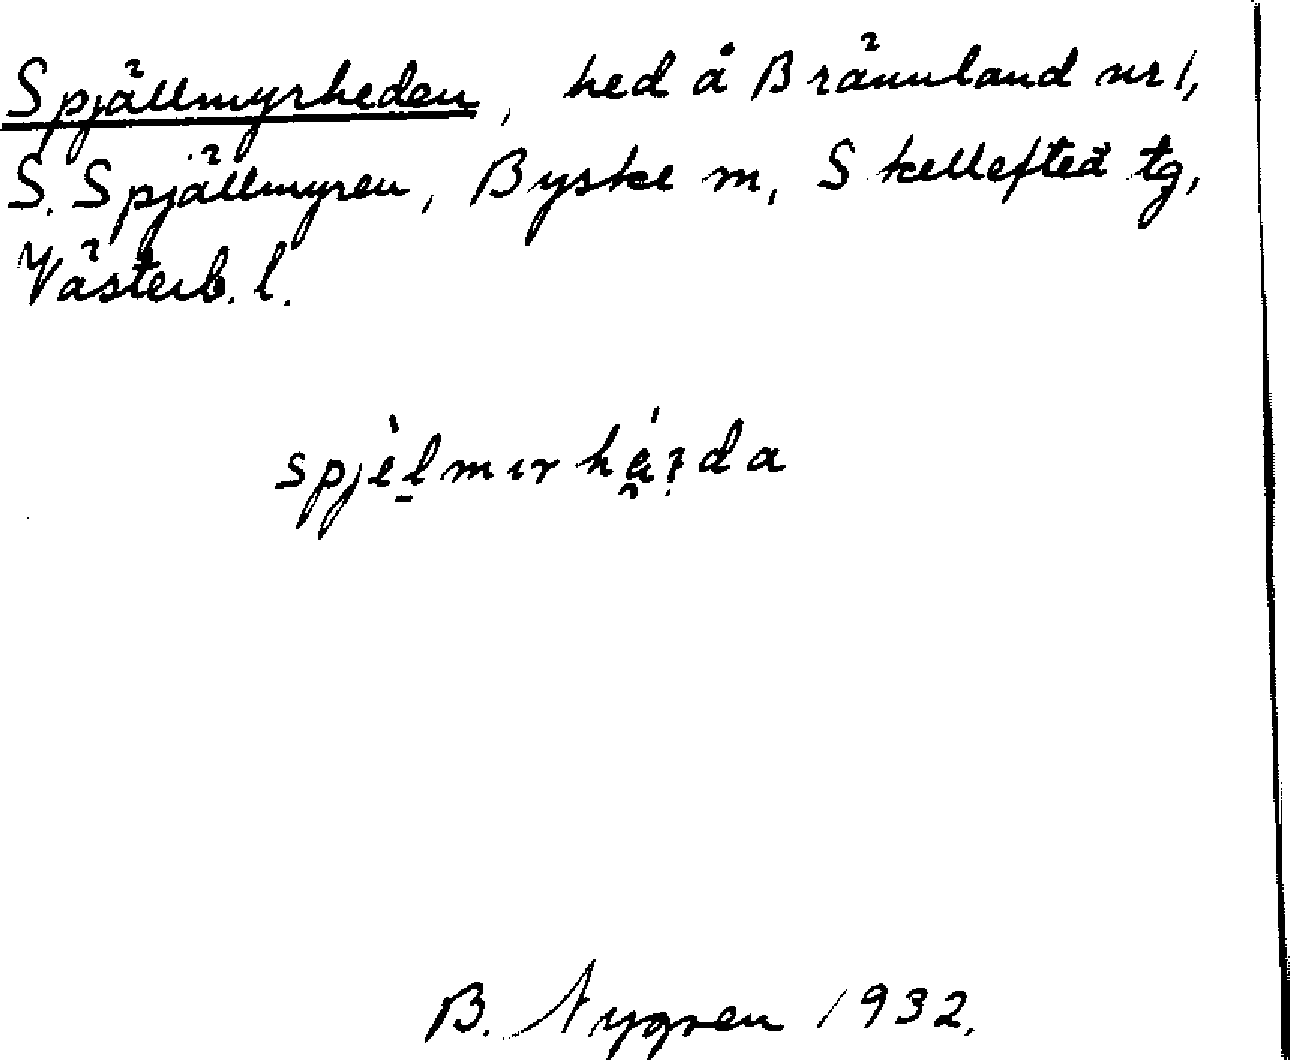 Spjällmyrheden, hed å Brännland nr 1,
S. Spjällmyren, Byske m, Skellefteå tg,
Västerb. l.
B. Nygren 1932.